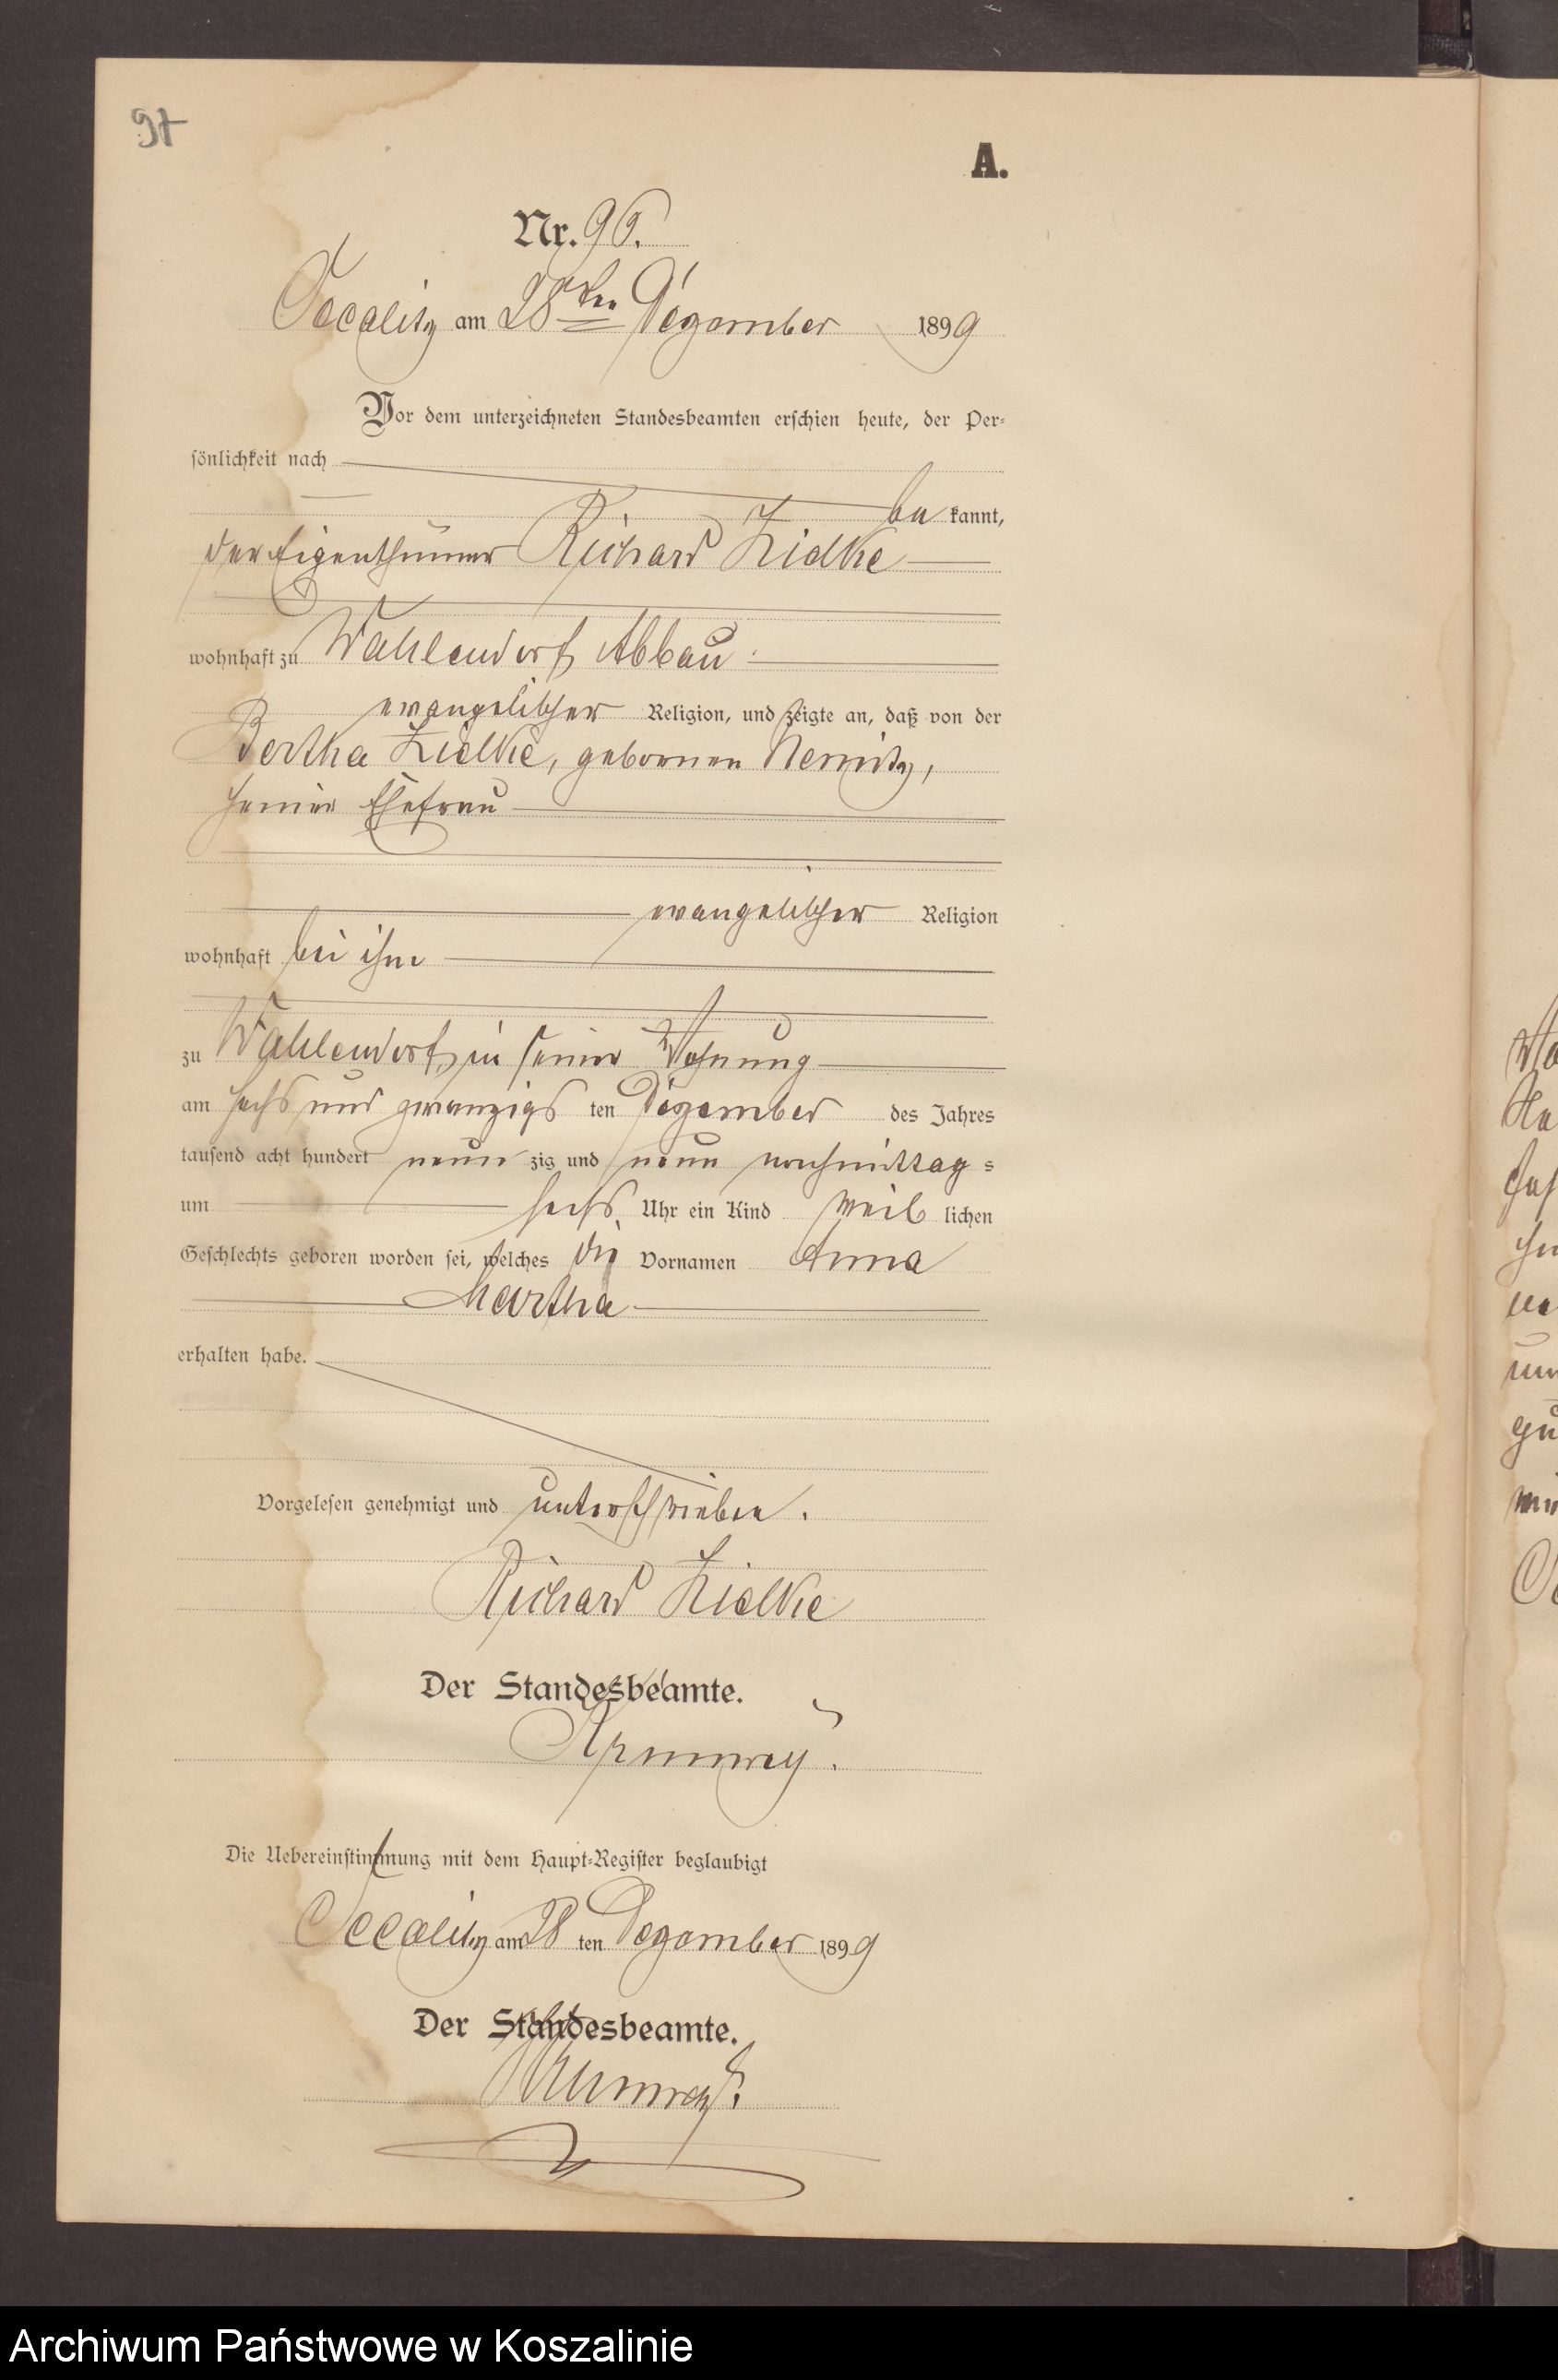 97
A.
Nr. 96.
Occalitz am 28ten Dezember 1899
Vor dem unterzeichneten Standesbeamten erschien heute, der Per-
sönlichkeit nach
be kannt,
der Eigenthümer Richard Zielke
wohnhaft zu Wahlendorf Abbau
evangelischer Religion, und zeigte an, daß von der
Bertha Zielke, geborenen Nemitz,
seiner Ehefrau
evangelischer Religion
wohnhaft bei ihm
zu Wahlendorf, in seiner Wohnung
am sechs und zwanzigs ten Dezember des Jahres
tausend acht hundert neun zig und neun nachmittag s
um sechs Uhr ein Kind weib lichen
Geschlechts geboren worden sei, welches die Vornamen Anna
Martha
erhalten habe.
Vorgelesen genehmigt und unterschrieben.
Richard Zielke
Der Standesbeamte.
Die Uebereinstimmung mit dem Haupt-Register beglaubigt
Occalitz am 28 ten Dezember 1899
Der Standesbeamte.
Archiwum Państwowe w Koszalinie